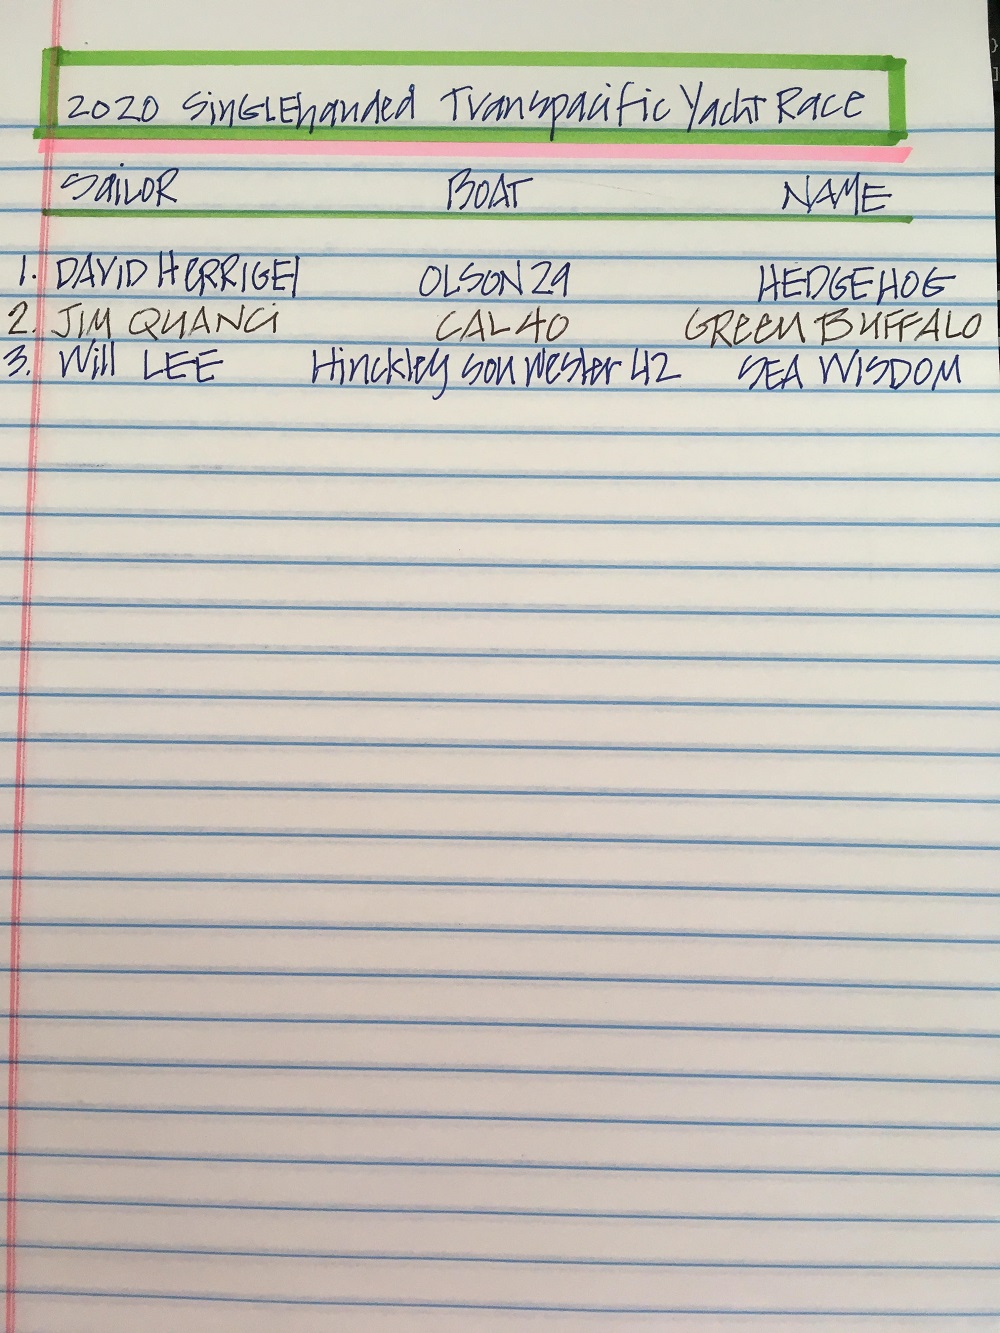 2020 SinGLEhanded Transpacific Yacht Race
SaiLOR BOAT NAME
1. DAVID HERRIGEl OLSON 29 HEDGEHOG
2. JIM QUANCi CAL 40 GREEN BUFFALO
3. Will LEE Hinckley sou wester 42 SEA WISDOM